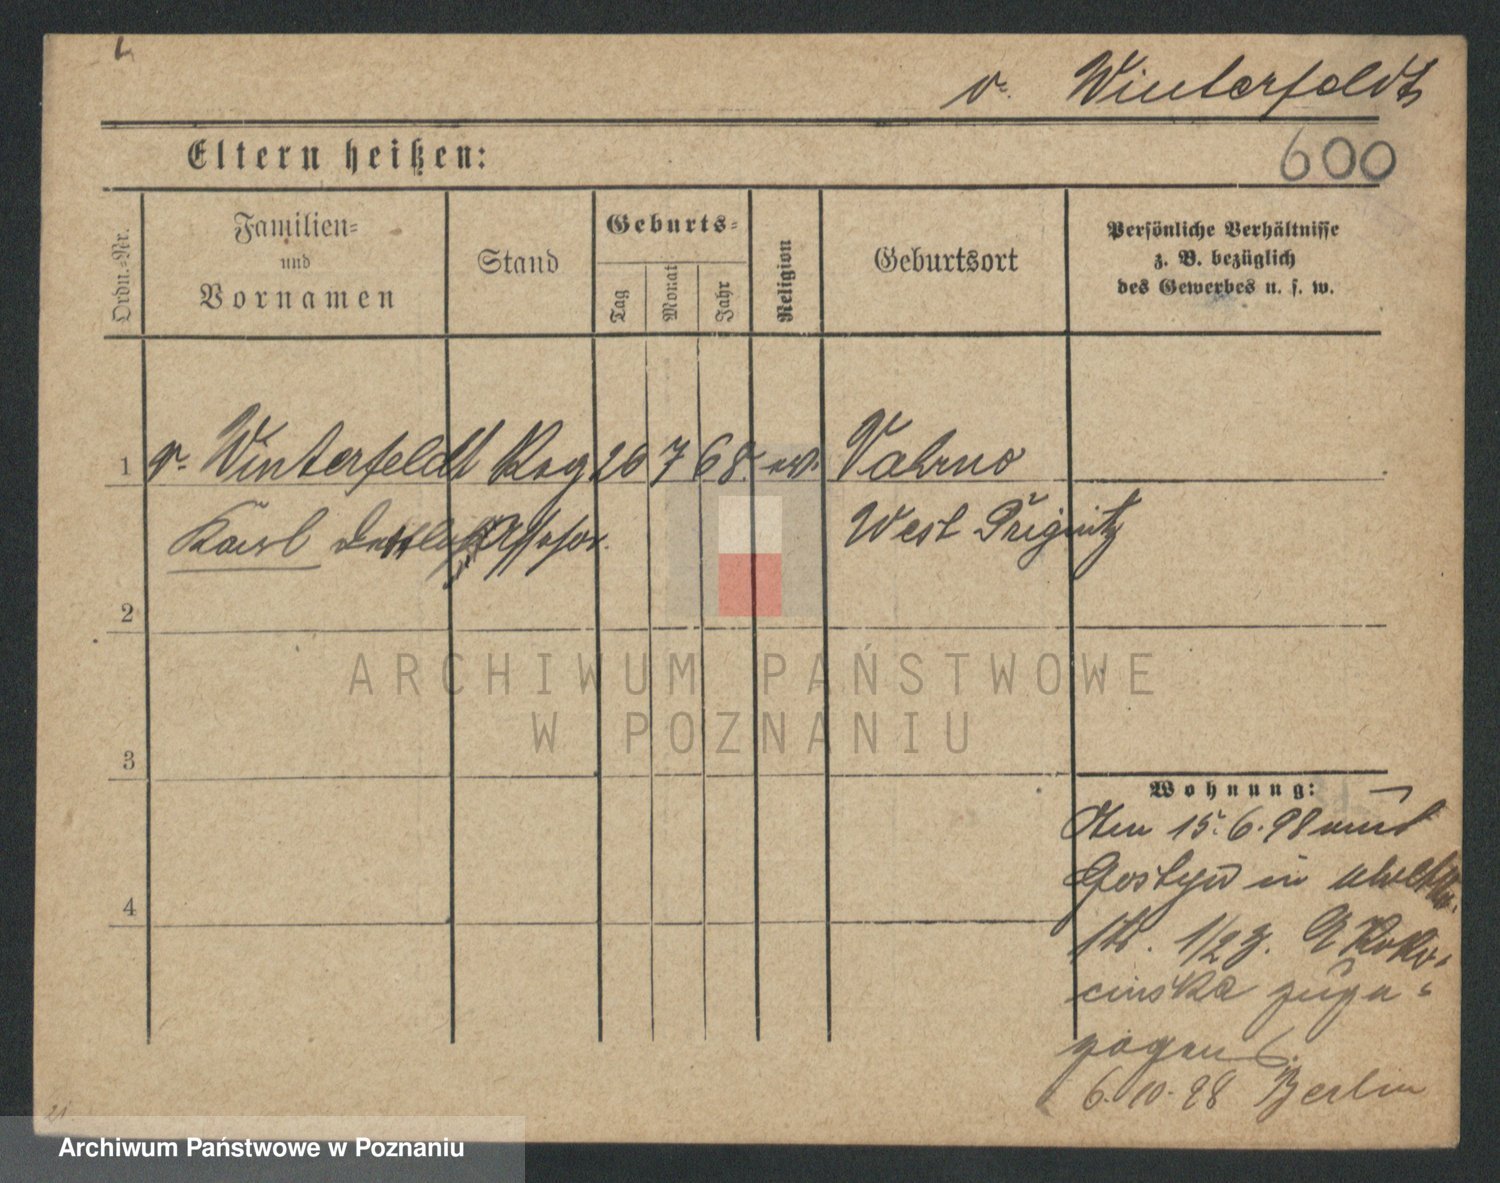 v. Winterfeldt
Eltern heißen:
600
Ordn.-Nr.
Familien-
und
Vornamen
Stand
Geburts-
Tag
Monat
Jahr
Religion
Geburtsort
Persönliche Verhältnisse
z. B. bezüglich
des Gewerbes u. s. w.
1 v. Winterfeldt Reg 26 7 68. ev. Vahrno
Karl Detlof Assessor. West Prignitz
2
ARCHIWUM PAŃSTWOWE
W POZNANIU
3
Wohnung:
Am 15.6.98 aus
Gostyn in
1/2 z.
cinska zuge-
zogen
6.10.98 Berlin
4
Archiwum Państwowe w Poznaniu